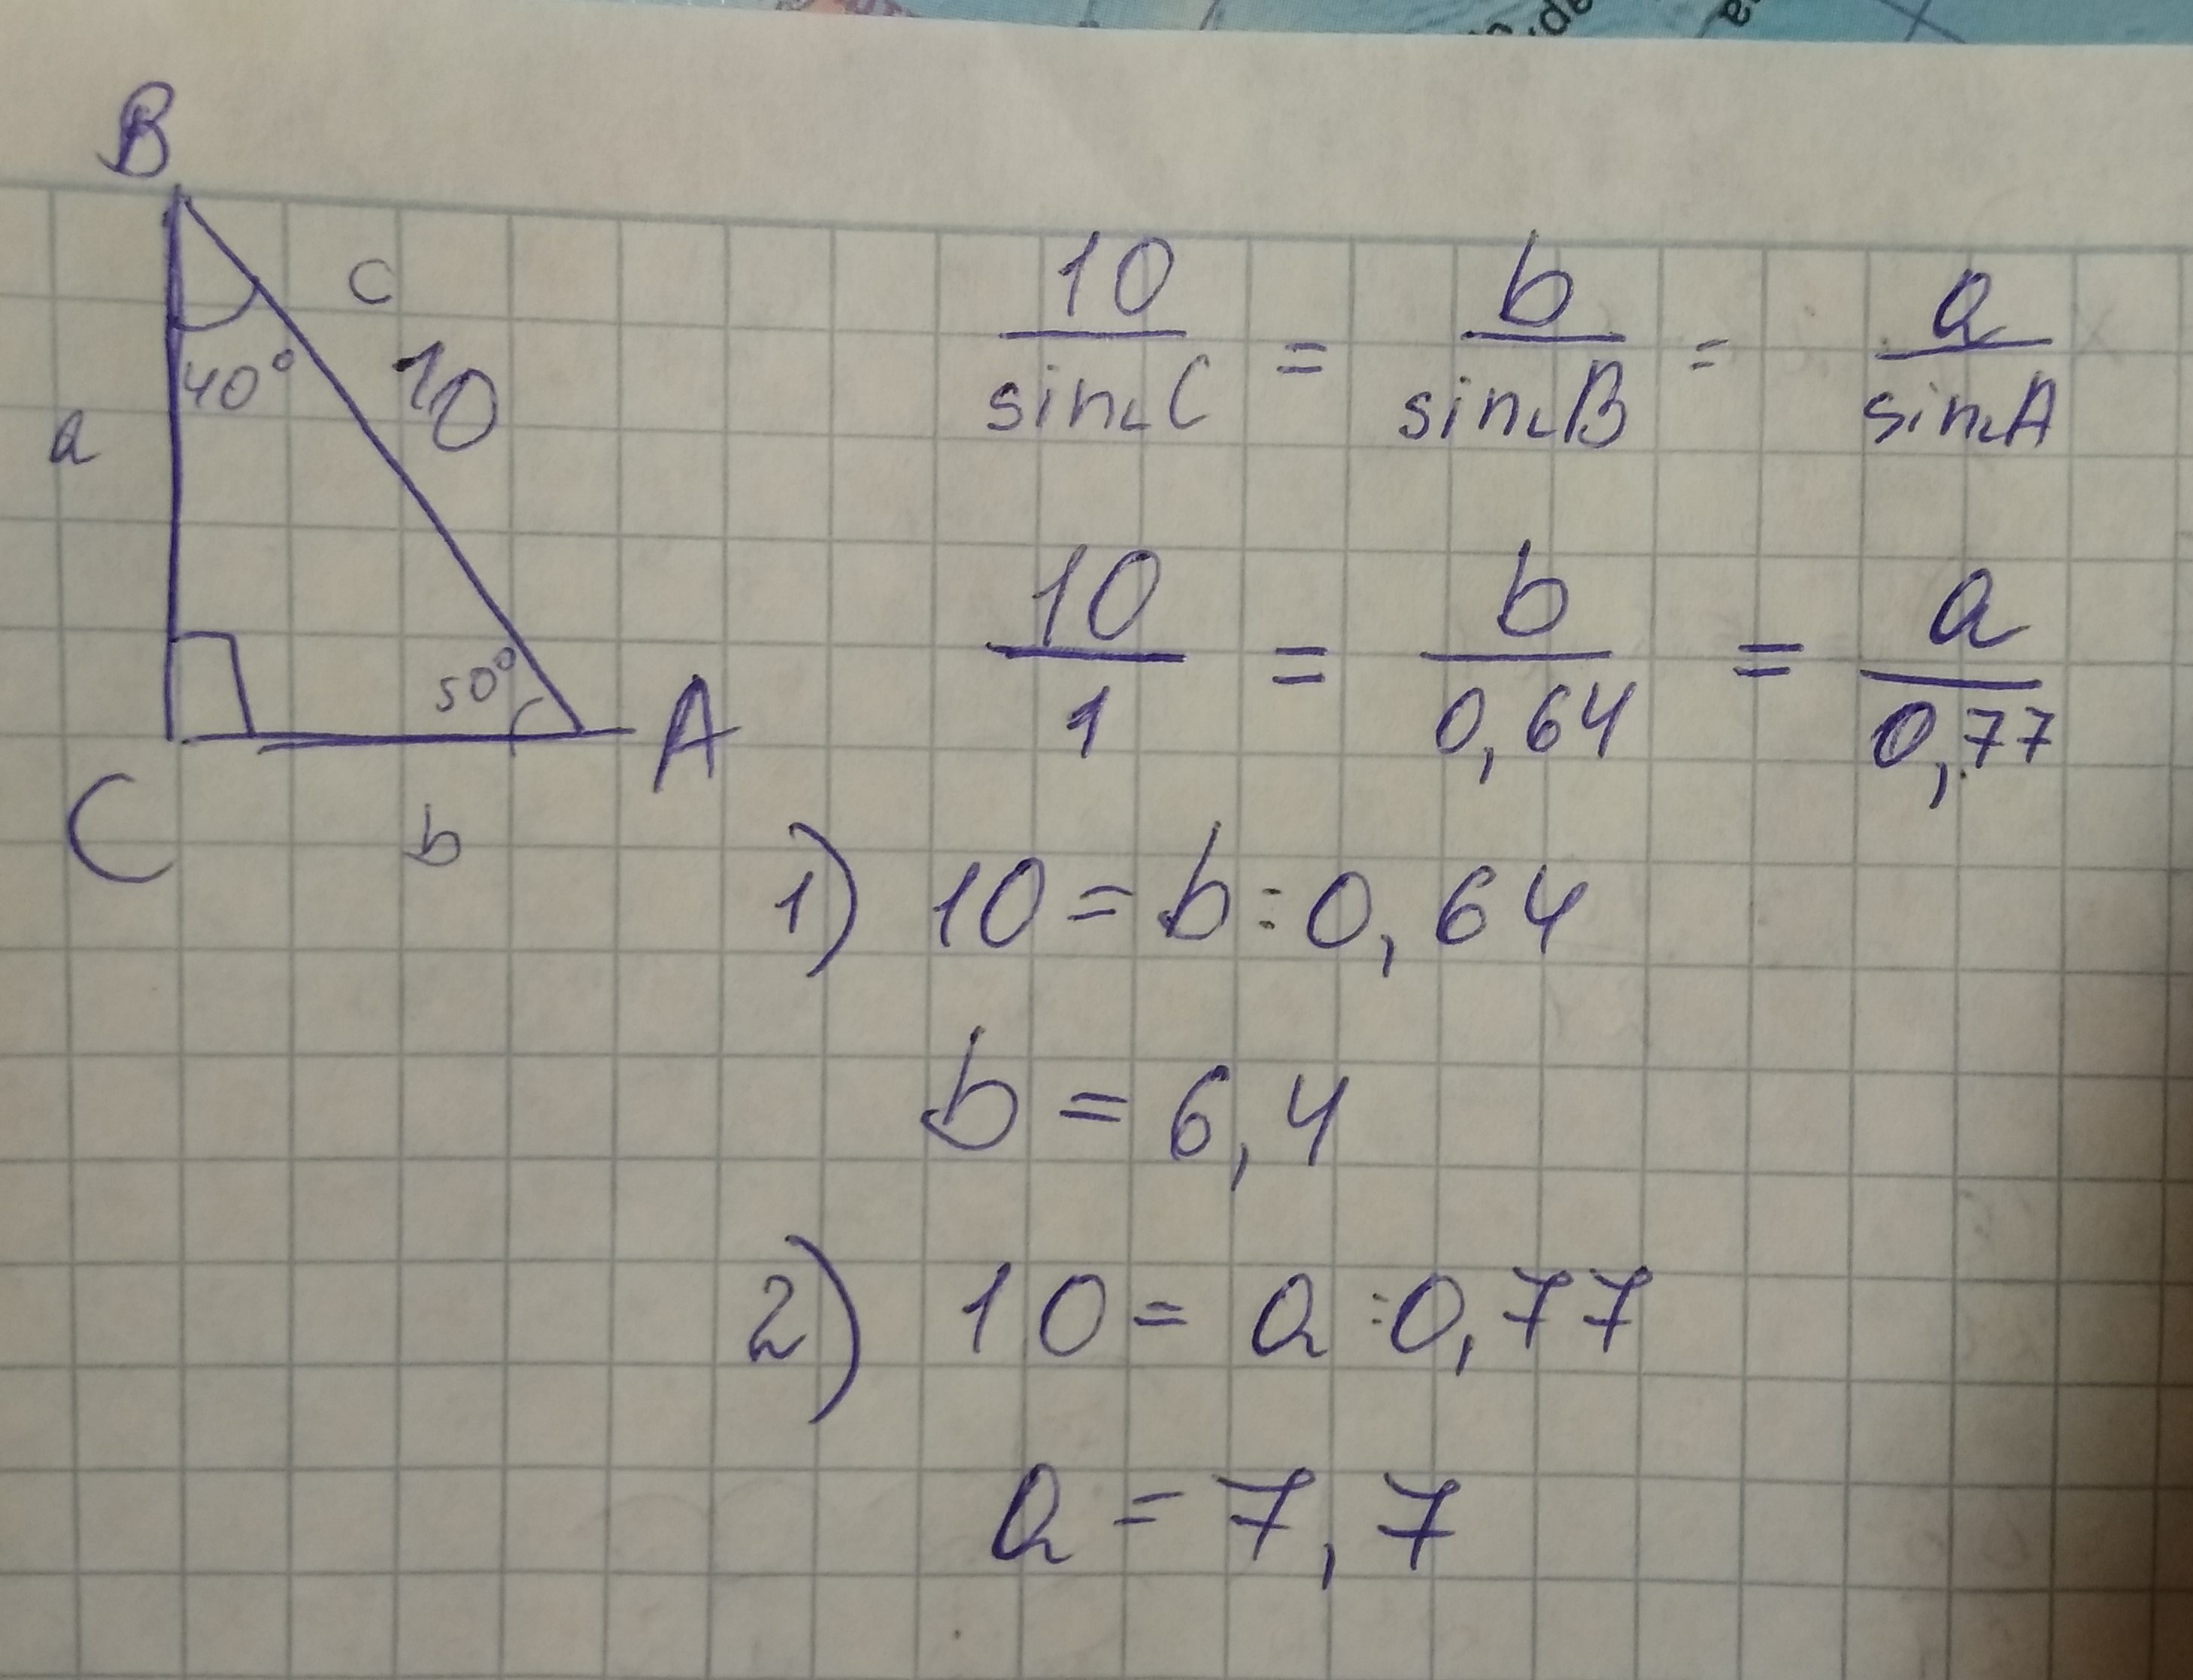 B
c
10
40°
a
50°
C
b
A
10/sin∠C = b/sin∠B = a/sin∠A
10/1 = b/0,64 = a/0,77
1) 10 = b : 0,64
b = 6,4
2) 10 = a : 0,77
a = 7,7